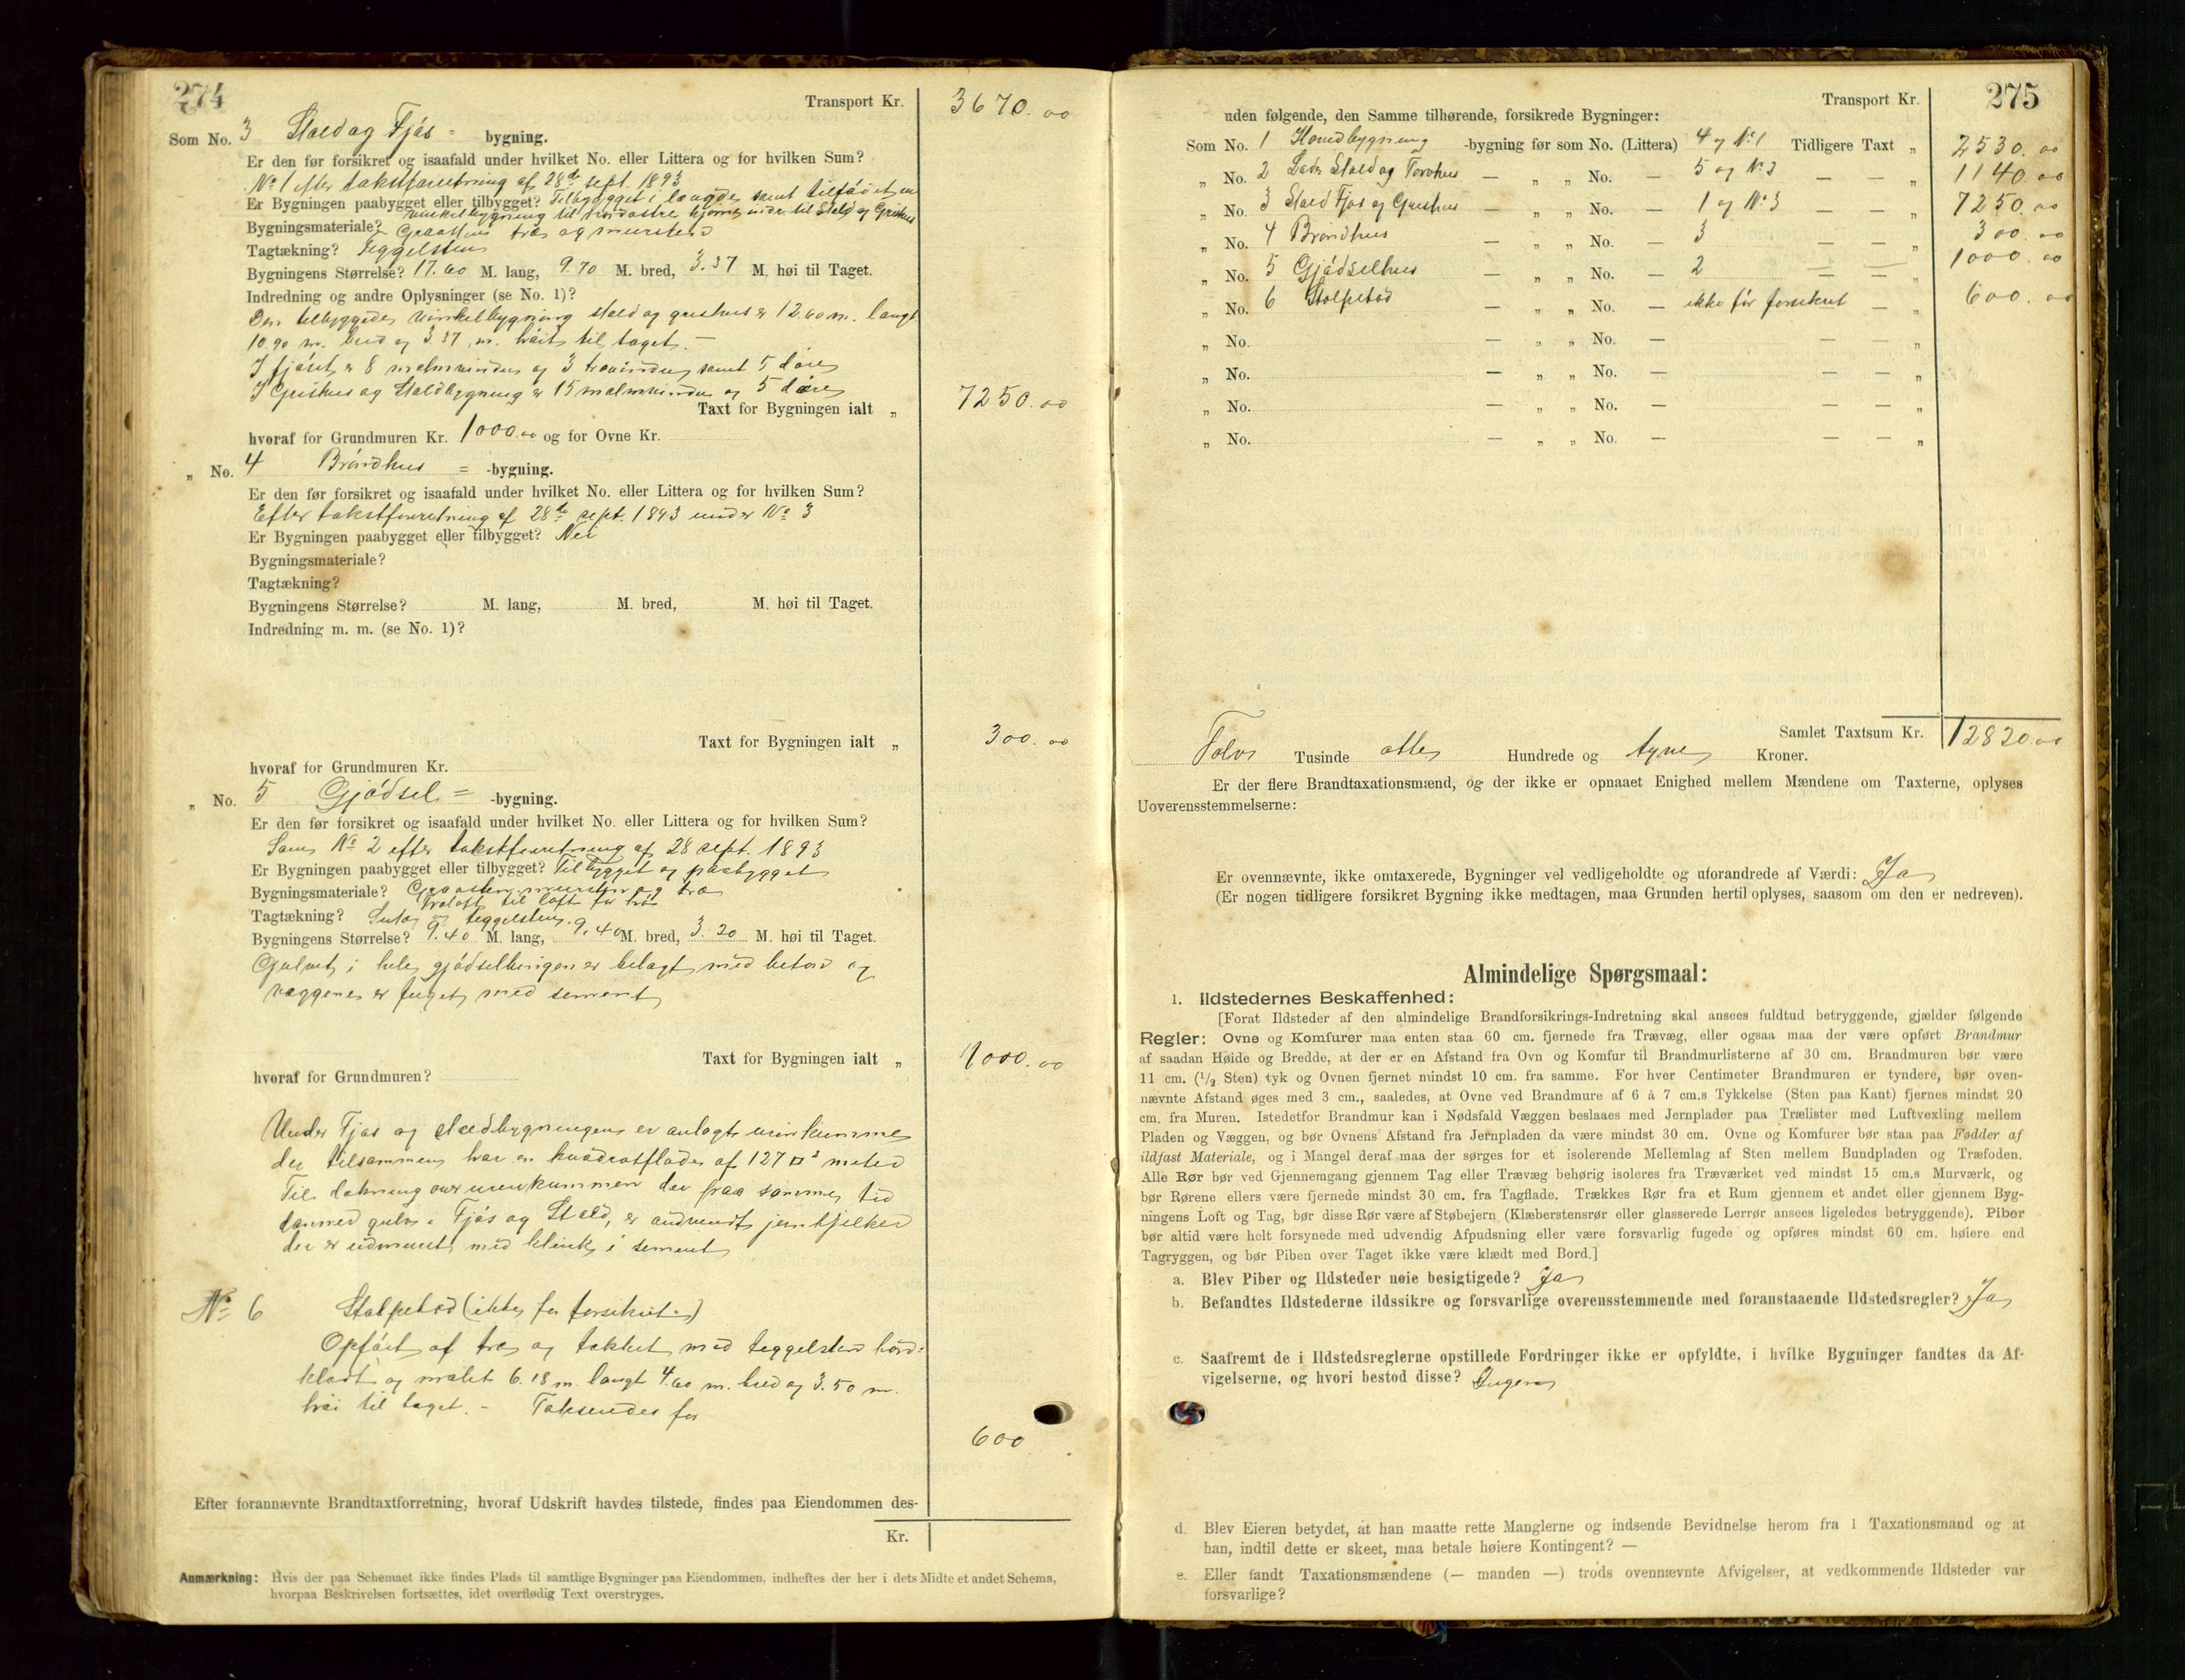 274
Transport Kr. 3670.00
Som No. 3 Stald og Fjøs = bygning.
Er den før forsikret og isaafald under hvilket No. eller Littera og for hvilken Sum?
No 1 efter takstforretning af 28de sept. 1893
Er Bygningen paabygget eller tilbygget? Tilbygget i længde samt tilføiet en
vinkelbygning til hjørne til Stald og Grishus
Bygningsmateriale? Graasten træ og mursten
Tagtækning? Teggelsten
Bygningens Størrelse? 17.60 M. lang, 9.70 M. bred, 3.37 M. høi til Taget.
Indredning og andre Oplysninger (se No. 1)?
Den tilbyggede vinkelbygning stald og grishus er 12.60 m. langt
10.90 m. bred og 3.37 m. høit til taget. —
I fjøset er 8 malmvinduer og 3 trævinduer samt 5 døre
I Grishus og Staldbygning er 15 malmvinduer og 5 døre
Taxt for Bygningen ialt „ 7250.00
hvoraf for Grundmuren Kr. 1000.00 og for Ovne Kr.
„ No. 4 Brøndhus = -bygning.
Er den før forsikret og isaafald under hvilket No. eller Littera og for hvilken Sum?
Efter takstforretning af 28de sept. 1893 under No 3
Er Bygningen paabygget eller tilbygget? Nei
Bygningsmateriale?
Tagtækning?
Bygningens Størrelse? M. lang, M. bred, M. høi til Taget.
Indredning m. m. (se No. 1)?
Taxt for Bygningen ialt „ 300.00
hvoraf for Grundmuren Kr.
„ No. 5 Gjødsel = -bygning.
Er den før forsikret og isaafald under hvilket No. eller Littera og for hvilken Sum?
Som No 2 efter takstforretning af 28 sept. 1893
Er Bygningen paabygget eller tilbygget? Tilbygget og paabygget
Bygningsmateriale? Graasten mursten og træ
Træloft til loft for
Tagtækning? Sutag og teggelsten.
Bygningens Størrelse? 9.40 M. lang, 9.40 M. bred, 3.20 M. høi til Taget.
Gulvet i hele gjødselbingen er belagt med beton og
væggene er fuget med sement
Taxt for Bygningen ialt „ 1000.00
hvoraf for Grundmuren?
Under Fjøs og staldbygningen er anlagt urinkumme
der tilsammen har en kvadratflade af 127 □² meter
Til dækning over urinkummen der paa samme tid
danner gulv i Fjøs og Stald, er anvendt jernbjelker
der er udmuret med klink i sement
No 6 Stolpebod (ikke før forsikret.)
Opført af træ og tækket med teggelsten bord=
klædt og malet 6.18 m. langt 4.60 m. bred og 3.50 m.
høi til taget. — Takseredes for
600
Efter forannævnte Brandtaxtforretning, hvoraf Udskrift havdes tilstede, findes paa Eiendommen des-
Kr.
Anmærkning: Hvis der paa Schemaet ikke findes Plads til samtlige Bygninger paa Eiendommen, indheftes der her i dets Midte et andet Schema,
hvorpaa Beskrivelsen fortsættes, idet overflødig Text overstryges.
275
Transport Kr.
uden følgende, den Samme tilhørende, forsikrede Bygninger:
Som No. 1 Hovedbygning -bygning før som No. (Littera) 4 og No 1 Tidligere Taxt „ 2530.00
„ No. 2 Lade Stald og Torvhus — „ „ No. — 5 og No 2 — — „ 1140.00
„ No. 3 Stald Fjøs og Grishus — „ „ No. — 1 og No 3 — — „ 7250.00
„ No. 4 Brøndhus — „ „ No. — 3 — — „ 300.00
„ No. 5 Gjødselhus — „ „ No. — 2 — — „ 1000.00
„ No. 6 Stolpebod — „ „ No. — ikke før forsikret — „ 600.00
„ No. — „ „ No. — — — „
„ No. — „ „ No. — — — „
„ No. — „ „ No. — — — „
„ No. — „ „ No. — — — „
Samlet Taxtsum Kr. 12820.00
Tolv Tusinde otte Hundrede og tyve Kroner.
Er der flere Brandtaxationsmænd, og der ikke er opnaaet Enighed mellem Mændene om Taxterne, oplyses
Uoverensstemmelserne:
Er ovennævnte, ikke omtaxerede, Bygninger vel vedligeholdte og uforandrede af Værdi: Ja
(Er nogen tidligere forsikret Bygning ikke medtagen, maa Grunden hertil oplyses, saasom om den er nedreven).
Almindelige Spørgsmaal:
1. Ildstedernes Beskaffenhed:
[Forat Ildsteder af den almindelige Brandforsikrings-Indretning skal ansees fuldtud betryggende, gjælder følgende
Regler: Ovne og Komfurer maa enten staa 60 cm. fjernede fra Trævæg, eller ogsaa maa der være opført Brandmur
af saadan Høide og Bredde, at der er en Afstand fra Ovn og Komfur til Brandmurlisterne af 30 cm. Brandmuren bør være
11 cm. (1/2 Sten) tyk og Ovnen fjernet mindst 10 cm. fra samme. For hver Centimeter Brandmuren er tyndere, bør oven-
nævnte Afstand øges med 3 cm., saaledes, at Ovne ved Brandmure af 6 à 7 cm.s Tykkelse (Sten paa Kant) fjernes mindst 20
cm. fra Muren. Istedetfor Brandmur kan i Nødsfald Væggen beslaaes med Jernplader paa Trælister med Luftvexling mellem
Pladen og Væggen, og bør Ovnens Afstand fra Jernpladen da være mindst 30 cm. Ovne og Komfurer bør staa paa Fødder af
ildfast Materiale, og i Mangel deraf maa der sørges for et isolerende Mellemlag af Sten mellem Bundpladen og Træfoden.
Alle Rør bør ved Gjennemgang gjennem Tag eller Trævæg behørig isoleres fra Træværket ved mindst 15 cm.s Murværk, og
bør Rørene ellers være fjernede mindst 30 cm. fra Tagflade. Trækkes Rør fra et Rum gjennem et andet eller gjennem Byg-
ningens Loft og Tag, bør disse Rør være af Støbejern (Klæberstensrør eller glasserede Lerrør ansees ligeledes betryggende). Piber
bør altid være helt forsynede med udvendig Afpudsning eller være forsvarlig fugede og opføres mindst 60 cm. høiere end
Tagryggen, og bør Piben over Taget ikke være klædt med Bord.]
a. Blev Piber og Ildsteder nøie besigtigede? Ja
b. Befandtes Ildstederne ildssikre og forsvarlige overensstemmende med foranstaaende Ildstedsregler? Ja
c. Saafremt de i Ildstedsreglerne opstillede Fordringer ikke er opfyldte, i hvilke Bygninger fandtes da Af-
vigelserne, og hvori bestod disse? Ingen
d. Blev Eieren betydet, at han maatte rette Manglerne og indsende Bevidnelse herom fra 1 Taxationsmand og at
han, indtil dette er skeet, maa betale høiere Kontingent? —
e. Eller fandt Taxationsmændene (— manden —) trods ovennævnte Afvigelser, at vedkommende Ildsteder var
forsvarlige?